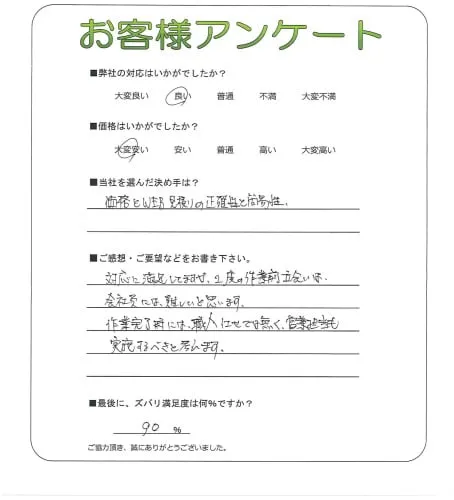 お客様アンケート
■弊社の対応はいかがでしたか？
大変良い 良い 普通 不満 大変不満
■価格はいかがでしたか？
大変安い 安い 普通 高い 大変高い
■当社を選んだ決め手は？
価格とWEB見積りの正確性と簡易性。
■ご感想・ご要望などをお書き下さい。
対応に満足してますが、2度の作業前立会いは、
会社員には、難しいと思います。
作業完了時には、職人任せでは無く、営業担当も
実施するべきと考えます。
■最後に、ズバリ満足度は何%ですか？
90 %
ご協力頂き、誠にありがとうございました。